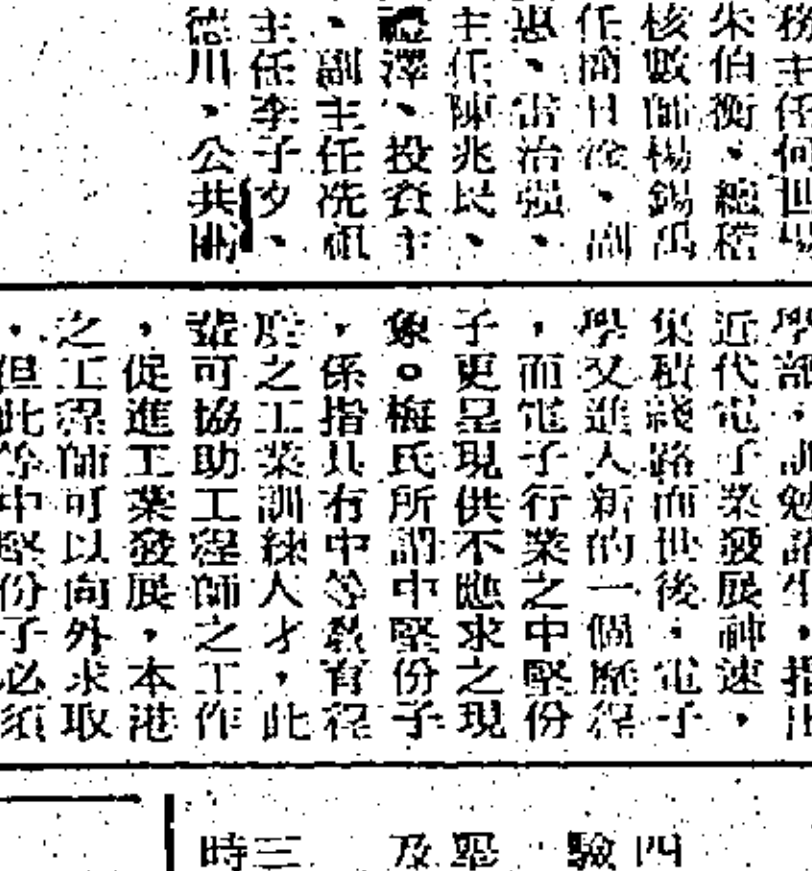 務主任何世
朱伯衡、總稽
核數師楊錫禹
任簡日淦、副
惠、雷治强、
主任陳兆民、
禮澤、投資主
、副主任冼祖
主任李子文、
德川、公共關
學部,訓勉諸生,指出
近代電子業發展神速,
集積綫路面世後,電子
學又進入新的一個歷程
,而電子行業之中堅份
子更呈現供不應求之現
象。梅氏所謂中堅份子
,係指具有中等教育程
度之工業訓練人才,此
輩可協助工程師之工作
,促進工業發展,本港
之工程師可以向外求取
,但此等中堅份子必須
四
驗
及
三
時